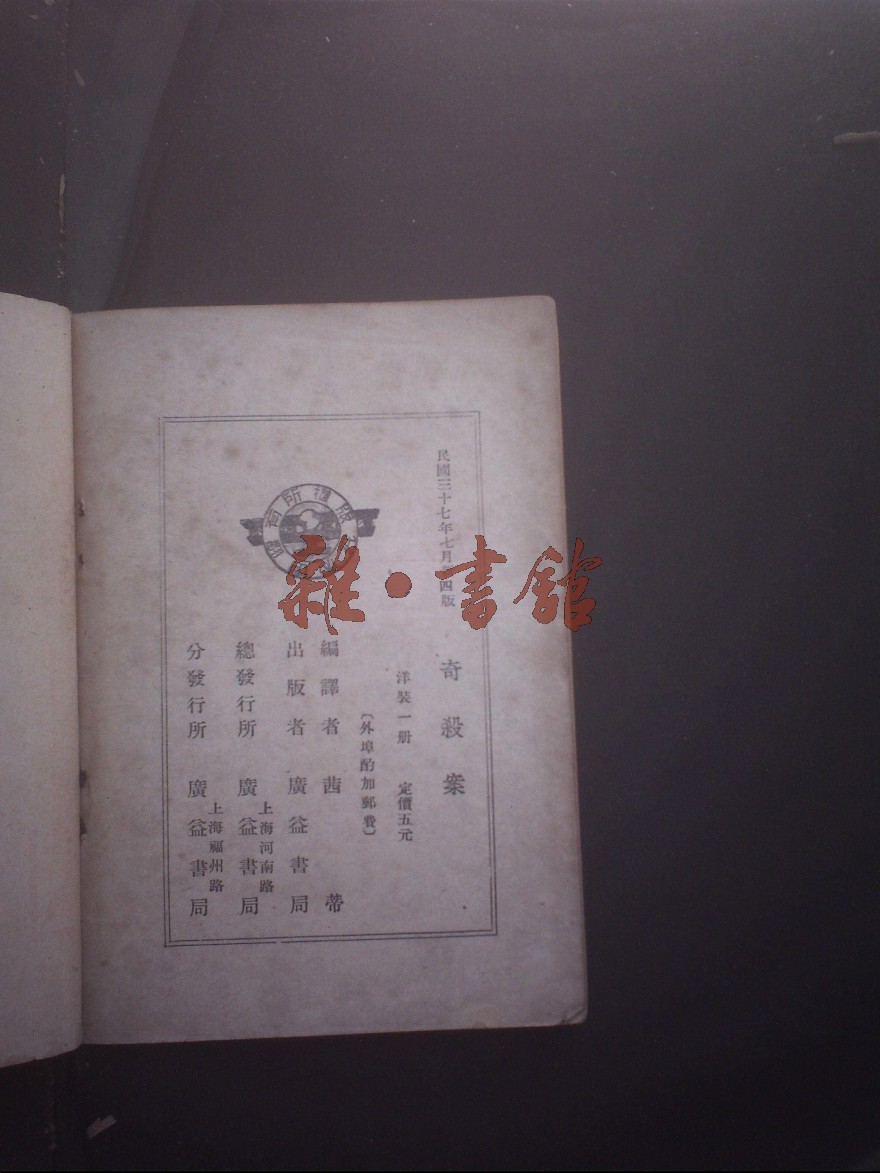 民國三十七年七月 四版
奇殺案
洋裝一册 定價五元
〔外埠酌加郵費〕
編譯者 茜蒂
出版者 廣益書局
上海河南路
總發行所 廣益書局
上海福州路
分發行所 廣益書局
版權所有
雜·書館